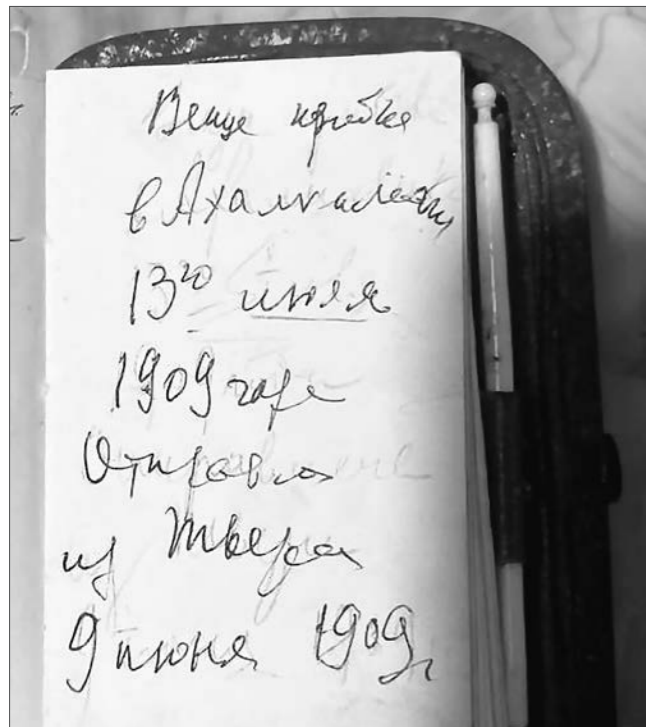 Вещи прибыли
в Ахалкалаки
13го июня
1909 года
Отправка
из Твери
9 июня 1909 г.